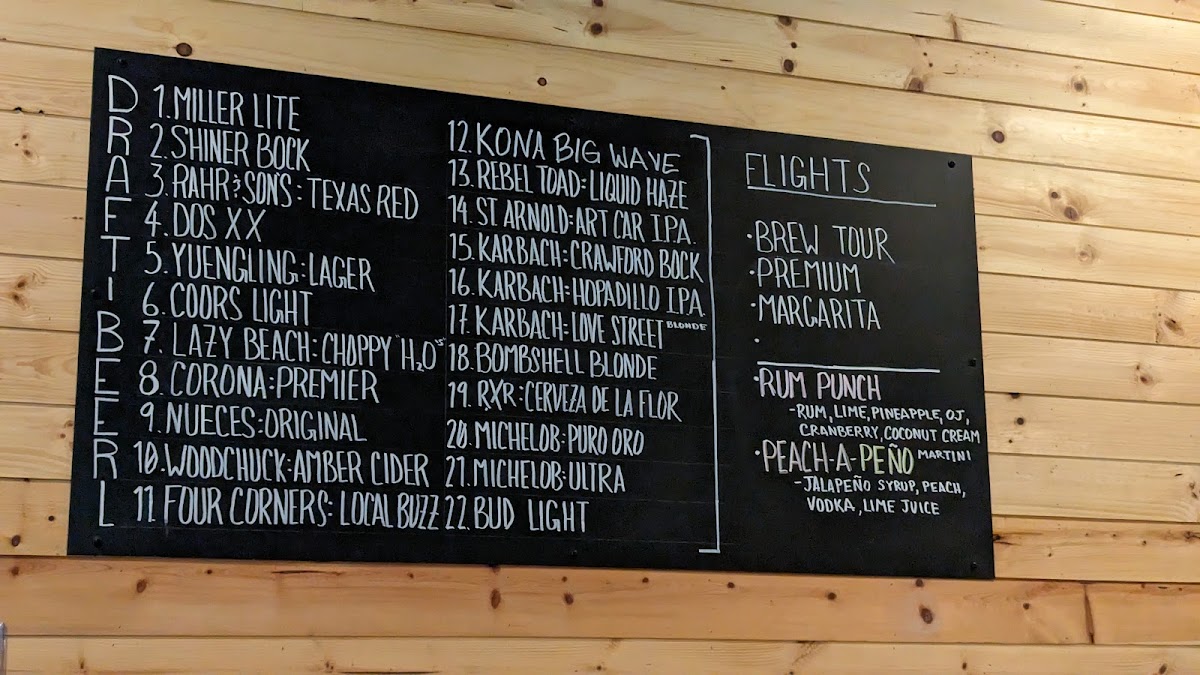 DRAFT BEER
1. MILLER LITE
2. SHINER BOCK
3. RAHR & SON'S: TEXAS RED
4. DOS XX
5. YUENGLING: LAGER
6. COORS LIGHT
7. LAZY BEACH: CHOPPY "H₂O"'S
8. CORONA: PREMIER
9. NUECES: ORIGINAL
10. WOODCHUCK: AMBER CIDER
11. FOUR CORNERS: LOCAL BUZZ
12. KONA BIG WAVE
13. REBEL TOAD: LIQUID HAZE
14. ST ARNOLD: ART CAR I.P.A.
15. KARBACH: CRAWFORD BOCK
16. KARBACH: HOPADILLO I.P.A.
17. KARBACH: LOVE STREET BLONDE
18. BOMBSHELL BLONDE
19. RXR: CERVEZA DE LA FLOR
20. MICHELOB: PURO ORO
21. MICHELOB: ULTRA
22. BUD LIGHT
FLIGHTS
· BREW TOUR
· PREMIUM
· MARGARITA
·
· RUM PUNCH
- RUM, LIME, PINEAPPLE, OJ,
CRANBERRY, COCONUT CREAM
· PEACH-A-PEÑO MARTINI
- JALAPEÑO SYRUP, PEACH,
VODKA, LIME JUICE